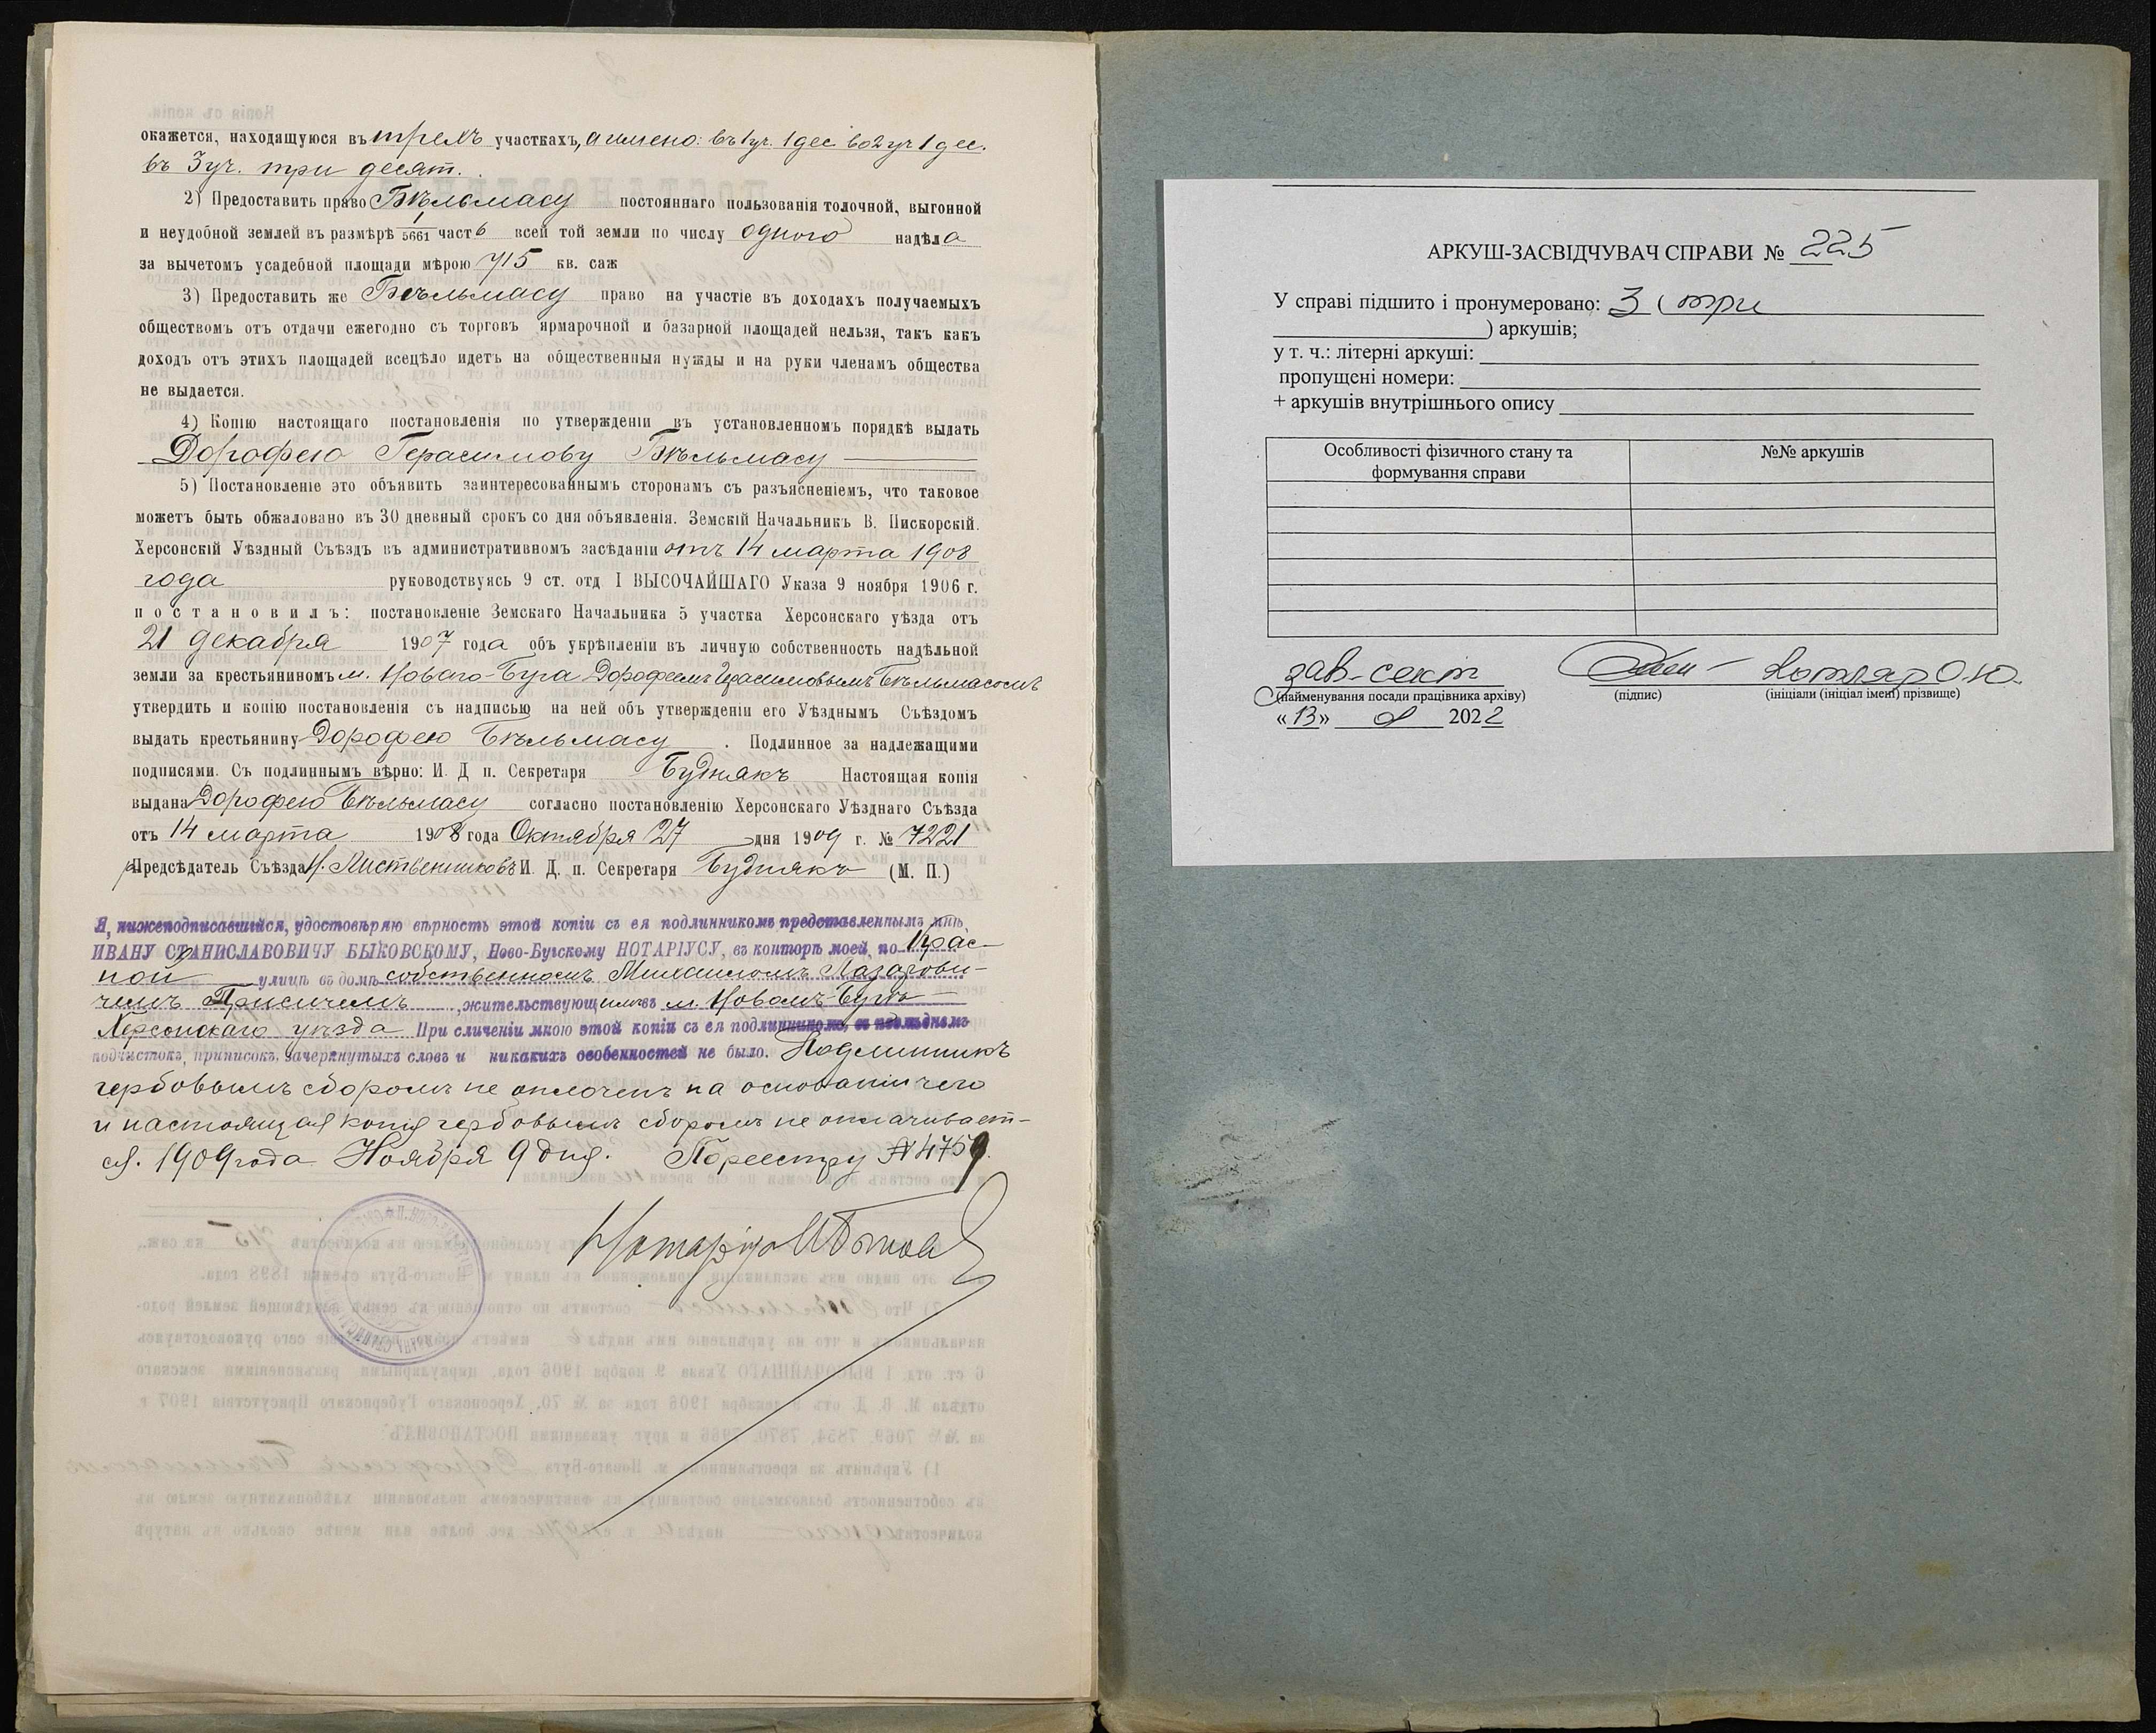 окажется, находящуюся въ трехъ участкахъ, а имено: въ 1 уч. 1 дес. во 2 уч 1 дес.
въ 3 уч. три десят.
2) Предоставить право Бѣльмасу постояннаго пользованія толочной, выгонной
и неудобной землей въ размѣрѣ 1/5661 часть всей той земли по числу одного надѣла
за вычетомъ усадебной площади мѣрою 715 кв. саж
3) Предоставить же Бѣльмасу право на участіе въ доходахъ получаемыхъ
обществомъ отъ отдачи ежегодно съ торговъ ярмарочной и базарной площадей нельзя, такъ какъ
доходъ отъ этихъ площадей всецѣло идетъ на общественныя нужды и на руки членамъ общества
не выдается.
4) Копію настоящаго постановленія по утвержденіи въ установленномъ порядкѣ выдать
Дорофею Герасимову Бѣльмасу
5) Постановленіе это объявить заинтересованнымъ сторонамъ съ разъясненіемъ, что таковое
можетъ быть обжаловано въ 30 дневный срокъ со дня объявленія. Земскій Начальникъ В. Пискорскій.
Херсонскій Уѣздный Съѣздъ въ административномъ засѣданіи отъ 14 марта 1908
года руководствуясь 9 ст. отд I ВЫСОЧАЙШАГО Указа 9 ноября 1906 г.
постановилъ: постановленіе Земскаго Начальника 5 участка Херсонскаго уѣзда отъ
21 декабря 1907 года объ укрѣпленіи въ личную собственность надѣльной
земли за крестьяниномъ м. Новаго-Буга Дорофеемъ Герасимовымъ Бѣльмасомъ
утвердить и копію постановленія съ надписью на ней объ утвержденіи его Уѣзднымъ Съѣздомъ
выдать крестьянину Дорофею Бѣльмасу. Подлинное за надлежащими
подписями. Съ подлиннымъ вѣрно: И. Д п. Секретаря Буднякъ Настоящая копія
выдана Дорофею Бѣльмасу согласно постановленію Херсонскаго Уѣзднаго Съѣзда
отъ 14 марта 1908 года Октября 27 дня 1909 г. № 7221
Предсѣдатель Съѣзда Н. Листвениковъ И. Д. п. Секретаря Буднякъ (М. П.)
Я, нижеподписавшійся, удостовѣряю вѣрность этой копіи съ ея подлинникомъ представленнымъ мнѣ,
ИВАНУ СТАНИСЛАВОВИЧУ БЫКОВСКОМУ, Ново-Бугскому НОТАРІУСУ, въ конторѣ моей, по Крас-
ной улицѣ въ домѣ собственномъ Михаиломъ Лазарови-
чемъ Присичемъ, жительствующимъ въ м. Новомъ-Бугѣ
Херсонскаго уѣзда При сличеніи мною этой копіи съ ея подлинникомъ, въ послѣднемъ
подчистокъ, приписокъ, зачеркнутыхъ словъ и никакихъ особенностей не было. Подлинникъ
гербовымъ сборомъ не оплоченъ на основаніи чего
и настоящая копія гербовымъ сборомъ не оплачивает-
ся. 1909 года Ноября 9 дня. По реестру № 4759.
Нотаріусъ И Быков
АРКУШ-ЗАСВІДЧУВАЧ СПРАВИ № 225
У справі підшито і пронумеровано: 3 ( три
) аркушів;
у т. ч.: літерні аркуші:
пропущені номери:
+ аркушів внутрішнього опису
Особливості фізичного стану та формування справи
№№ аркушів
зав. сект Котляр О.Ю.
(найменування посади працівника архіву) (підпис) (ініціали (ініціал імені) прізвище)
«13» 2022